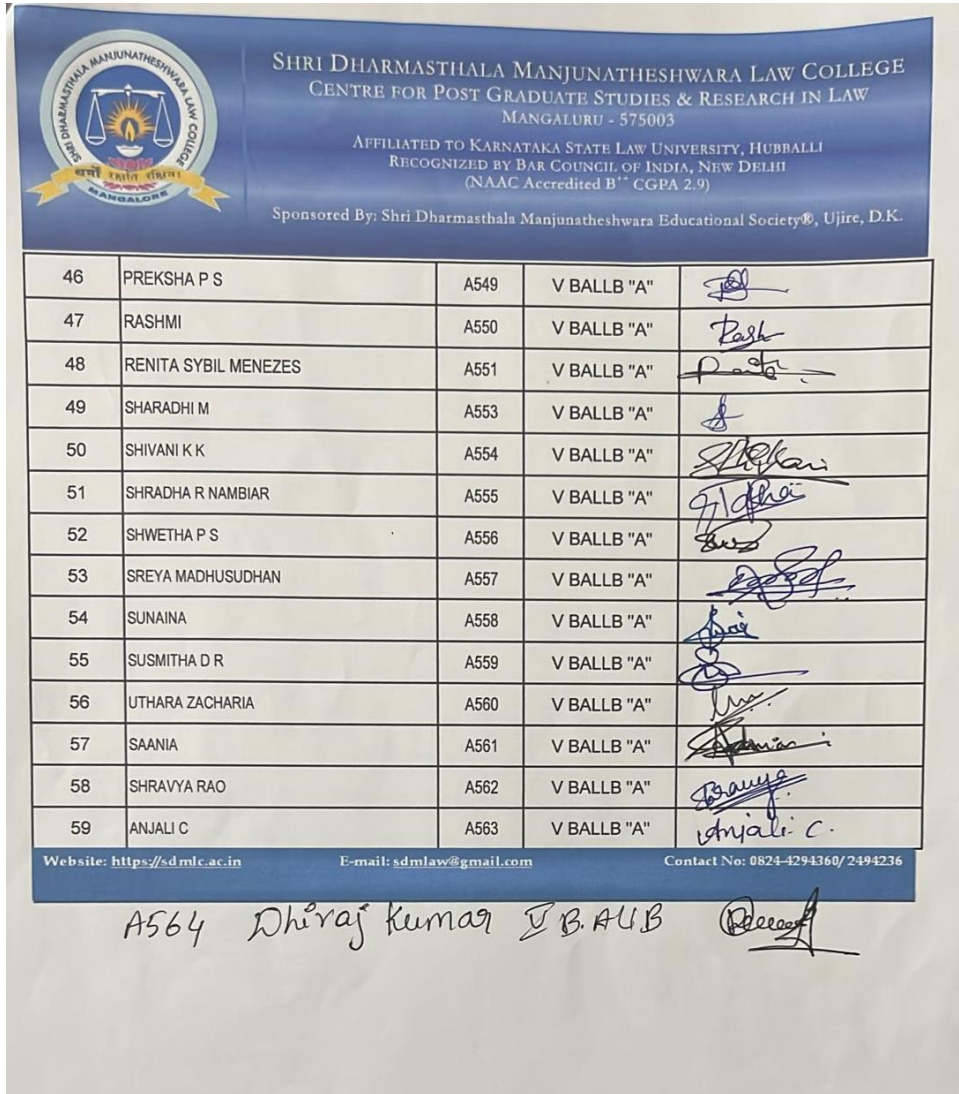 SHRI DHARMASTHALA MANJUNATHESHWARA LAW COLLEGE
MANGALORE
धर्मो रक्षति रक्षितः
SHRI DHARMASTHALA MANJUNATHESHWARA LAW COLLEGE
CENTRE FOR POST GRADUATE STUDIES & RESEARCH IN LAW
MANGALURU - 575003
AFFILIATED TO KARNATAKA STATE LAW UNIVERSITY, HUBBALLI
RECOGNIZED BY BAR COUNCIL OF INDIA, NEW DELHI
(NAAC Accredited B++ CGPA 2.9)
Sponsored By: Shri Dharmasthala Manjunatheshwara Educational Society®, Ujire, D.K.
46 PREKSHA P S A549 V BALLB "A"
47 RASHMI A550 V BALLB "A" Rash
48 RENITA SYBIL MENEZES A551 V BALLB "A"
49 SHARADHI M A553 V BALLB "A"
50 SHIVANI K K A554 V BALLB "A"
51 SHRADHA R NAMBIAR A555 V BALLB "A"
52 SHWETHA P S A556 V BALLB "A"
53 SREYA MADHUSUDHAN A557 V BALLB "A"
54 SUNAINA A558 V BALLB "A"
55 SUSMITHA D R A559 V BALLB "A"
56 UTHARA ZACHARIA A560 V BALLB "A"
57 SAANIA A561 V BALLB "A"
58 SHRAVYA RAO A562 V BALLB "A" Shravya
59 ANJALI C A563 V BALLB "A" Anjali. C.
Website: https://sdmlc.ac.in E-mail: sdmlaw@gmail.com Contact No: 0824-4294360/ 2494236
A564 Dhiraj Kumar V B.ALLB